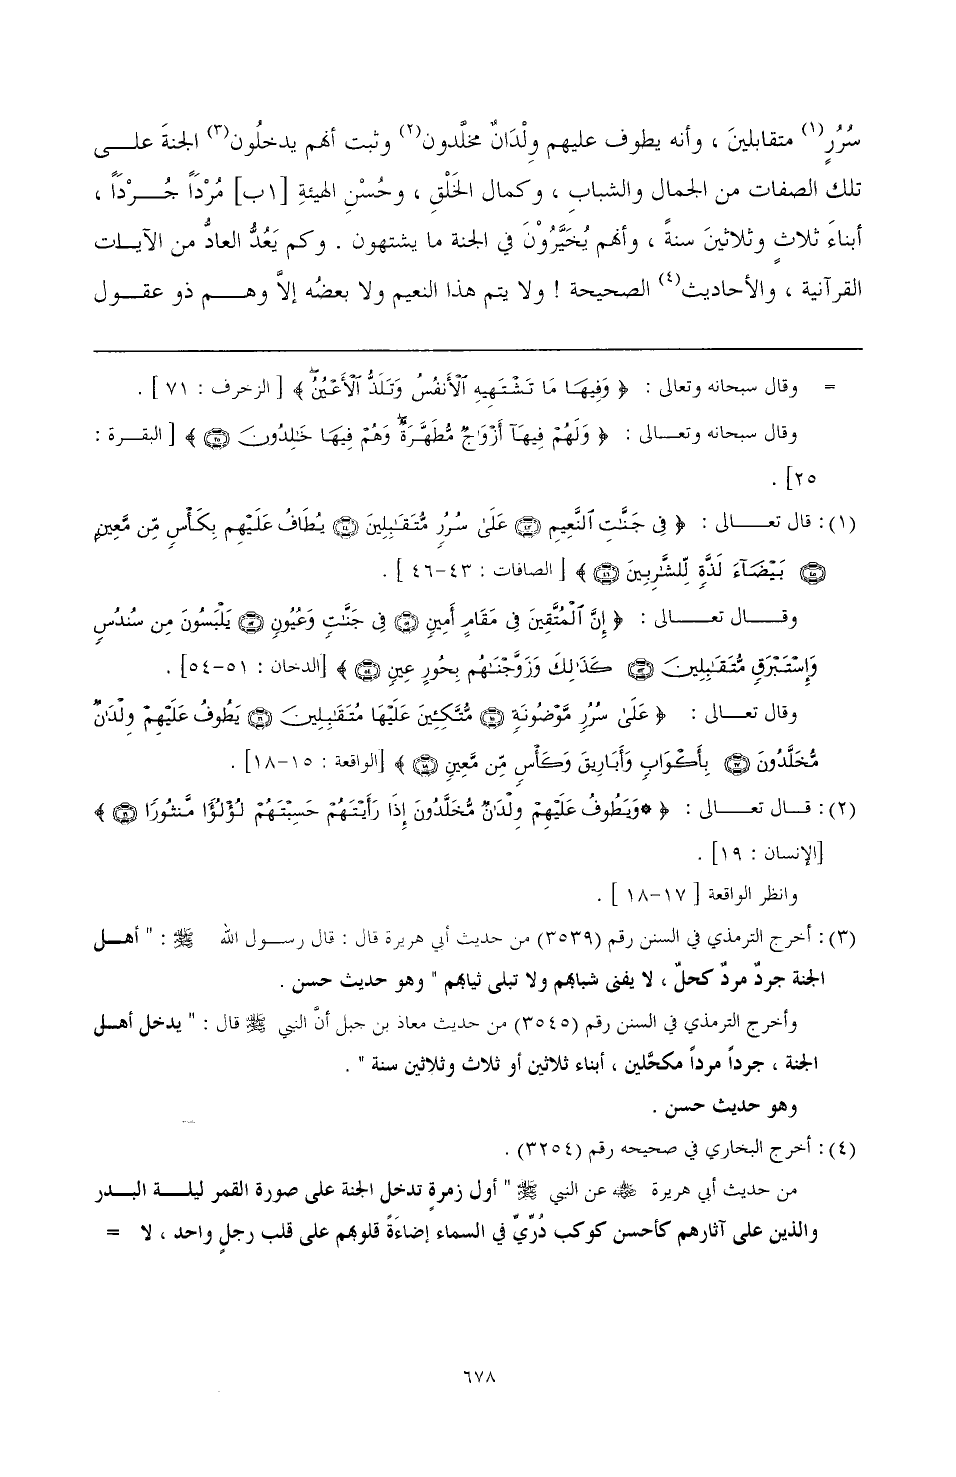 سُرُرٍ(١) متقابلينَ ، وأنه يطوف عليهم ولْدَانٌ مخلَّدون(٢) وثبت أنهم يدخلُون(٣) الجنةَ علــى
تلك الصفات من الجمال والشباب ، وكمال الخَلْقِ ، وحُسْنِ الهيئةِ [١ب] مُرْداً جُــرْداً ،
أبناءَ ثلاثٍ وثلاثينَ سنةً ، وأنهم يُخَيَّرُوْنَ في الجنة ما يشتهون . وكم يَعُدُّ العادُّ من الآيــات
القرآنية ، والأحاديث(٤) الصحيحة ! ولا يتم هذا النعيم ولا بعضُه إلاَّ وهــم ذو عقــول
= وقال سبحانه وتعالى : ﴿ وَفِيهَا مَا تَشْتَهِيهِ ٱلْأَنفُسُ وَتَلَذُّ ٱلْأَعْيُنُۖ ﴾ [ الزخرف : ٧١ ] .
وقال سبحانه وتعــالى : ﴿ وَلَهُمْ فِيهَآ أَزْوَٰجٌ مُّطَهَّرَةٌۖ وَهُمْ فِيهَا خَٰلِدُونَ ۝٢٥ ﴾ [ البقــرة :
٢٥] .
(١): قال تعــــالى : ﴿ فِى جَنَّٰتِ ٱلنَّعِيمِ ۝٤٣ عَلَىٰ سُرُرٍ مُّتَقَٰبِلِينَ ۝٤٤ يُطَافُ عَلَيْهِم بِكَأْسٍ مِّن مَّعِينٍ
۝٤٥ بَيْضَآءَ لَذَّةٍ لِّلشَّٰرِبِينَ ۝٤٦ ﴾ [ الصافات : ٤٣-٤٦ ] .
وقــــال تعــــالى : ﴿ إِنَّ ٱلْمُتَّقِينَ فِى مَقَامٍ أَمِينٍ ۝٥١ فِى جَنَّٰتٍ وَعُيُونٍ ۝٥٢ يَلْبَسُونَ مِن سُندُسٍ
وَإِسْتَبْرَقٍ مُّتَقَٰبِلِينَ ۝٥٣ كَذَٰلِكَ وَزَوَّجْنَٰهُم بِحُورٍ عِينٍ ۝٥٤ ﴾ [الدخان : ٥١-٥٤] .
وقال تعــالى : ﴿ عَلَىٰ سُرُرٍ مَّوْضُونَةٍ ۝١٥ مُّتَّكِـِٔينَ عَلَيْهَا مُتَقَٰبِلِينَ ۝١٦ يَطُوفُ عَلَيْهِمْ وِلْدَٰنٌ
مُّخَلَّدُونَ ۝١٧ بِأَكْوَابٍ وَأَبَارِيقَ وَكَأْسٍ مِّن مَّعِينٍ ۝١٨ ﴾ [الواقعة : ١٥-١٨] .
(٢): قــال تعــــالى : ﴿ ۞وَيَطُوفُ عَلَيْهِمْ وِلْدَٰنٌ مُّخَلَّدُونَ إِذَا رَأَيْتَهُمْ حَسِبْتَهُمْ لُؤْلُؤًا مَّنثُورًا ۝١٩ ﴾
[الإنسان : ١٩] .
وانظر الواقعة [ ١٧-١٨ ] .
(٣): أخرج الترمذي في السنن رقم (٣٥٣٩) من حديث أبي هريرة قال : قال رســول الله ﷺ : " أهــل
الجنة جردٌ مردٌ كحلٌ ، لا يفنى شبابهم ولا تبلى ثيابهم " وهو حديث حسن .
وأخرج الترمذي في السنن رقم (٣٥٤٥) من حديث معاذ بن جبل أنَّ النبي ﷺ قال : " يدخل أهــل
الجنة ، جرداً مرداً مكحَّلين ، أبناء ثلاثين أو ثلاث وثلاثين سنة " .
وهو حديث حسن .
(٤): أخرج البخاري في صحيحه رقم (٣٢٥٤) .
من حديث أبي هريرة ﷺ عن النبي ﷺ " أول زمرةٍ تدخل الجنة على صورة القمر ليلــة البــدر
والذين على آثارهم كأحسن كوكب دُرِّيٍّ في السماء إضاءَةً قلوبهم على قلب رجلٍ واحد ، لا =
٦٧٨